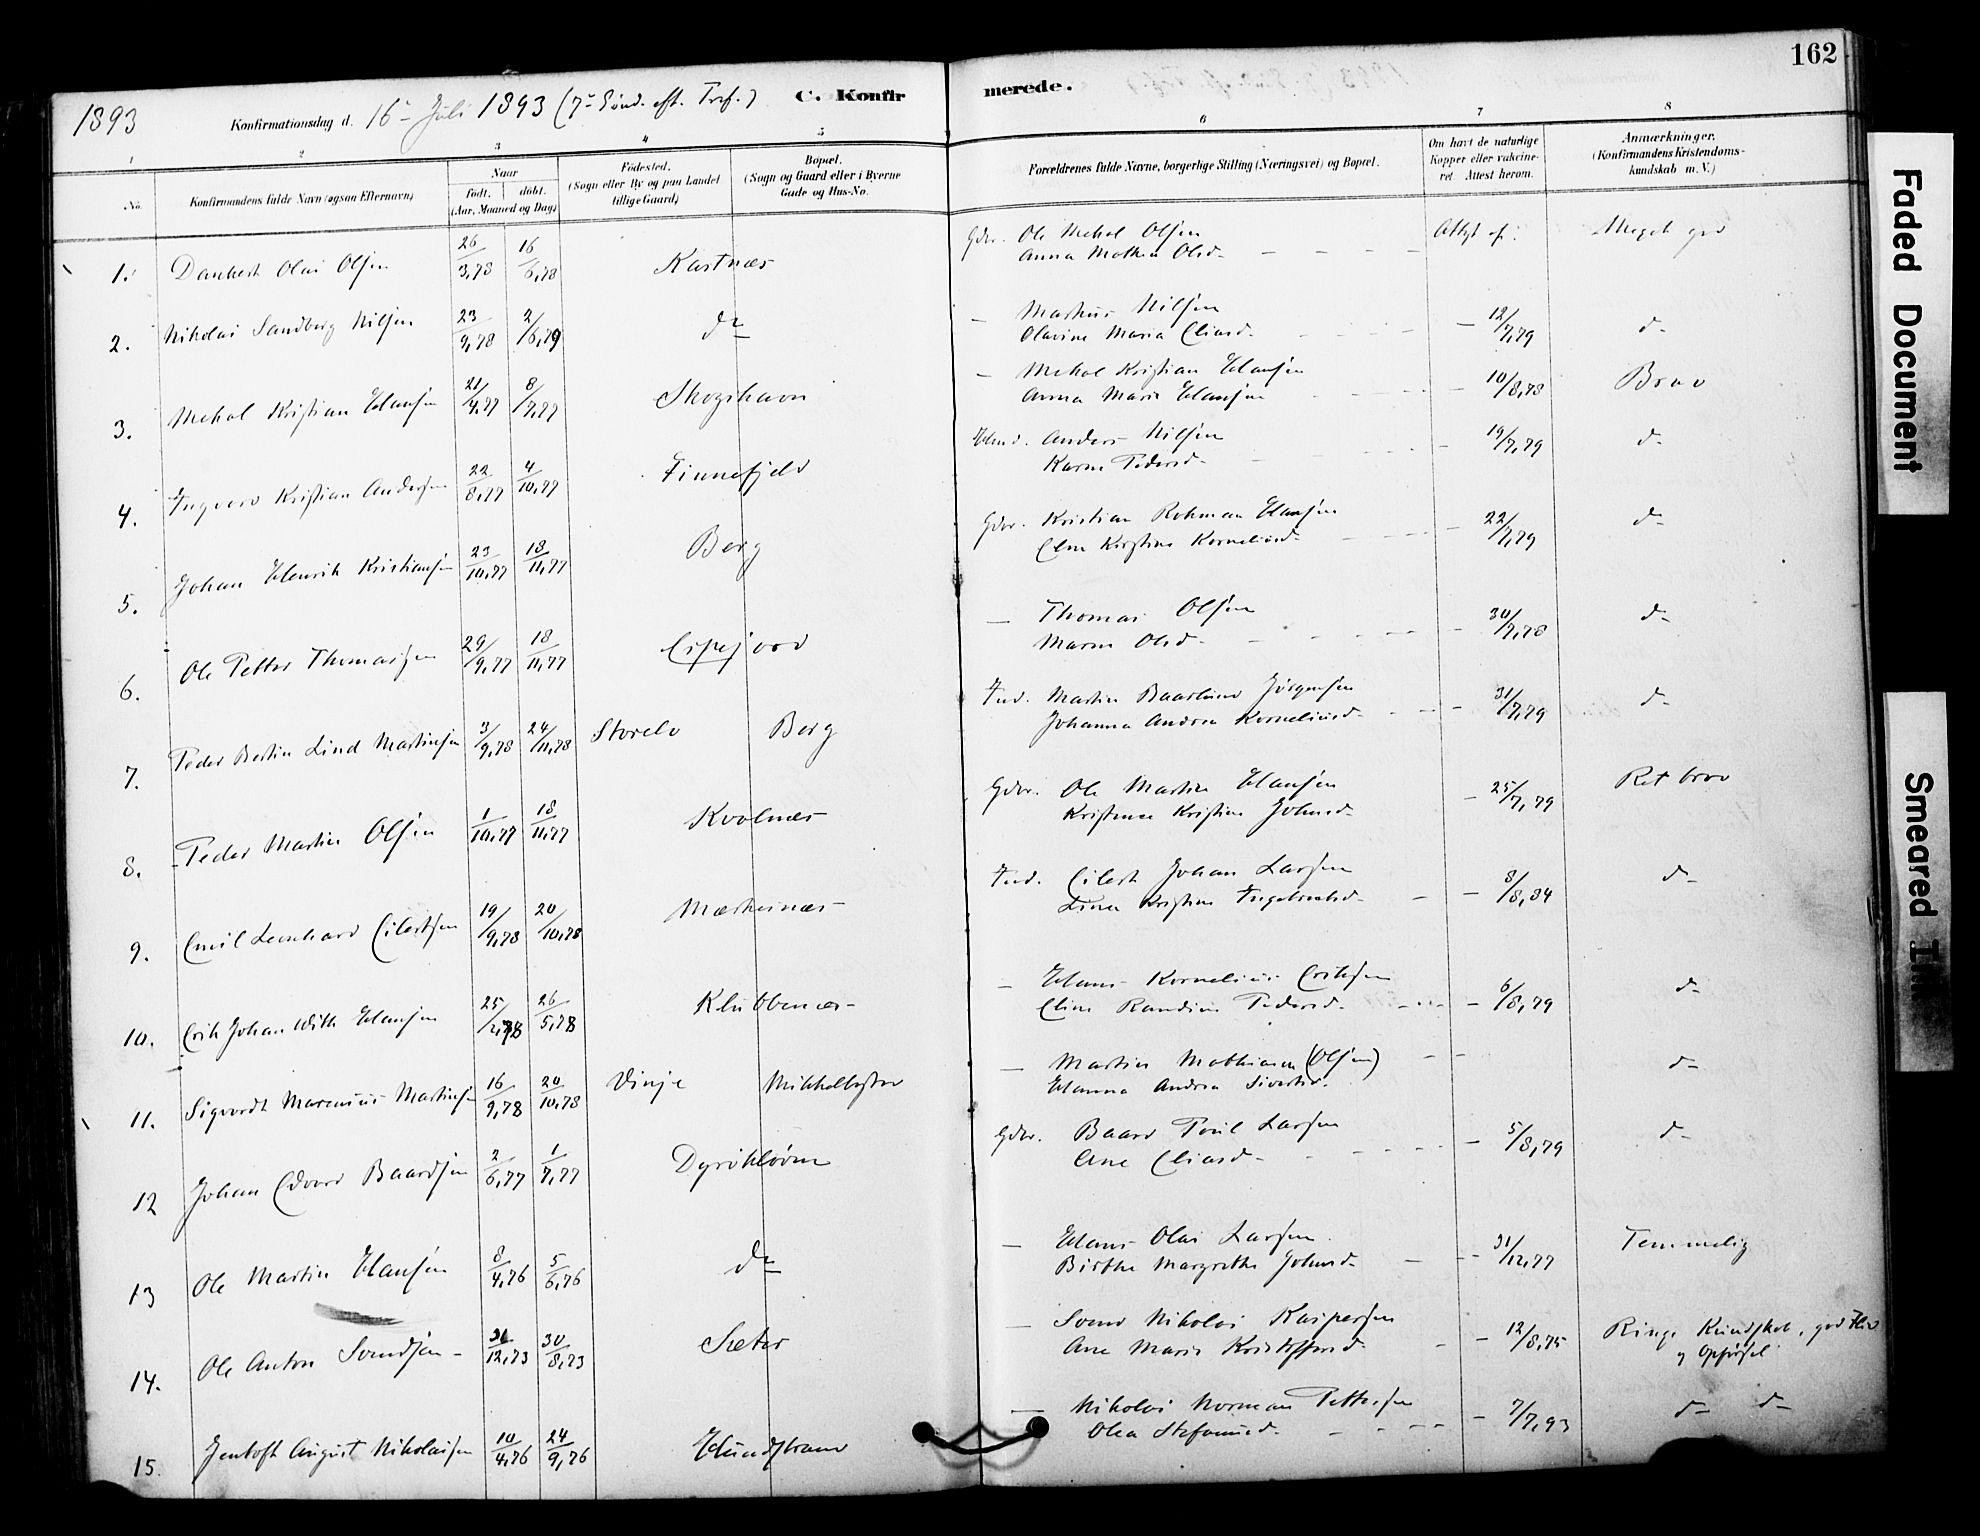 162
1893
Konfirmationsdag d. 16 Juli 1893 (7 Sønd. eft. Tref.)
C. Konfirmerede.
1 2 3 4 5 6 7 8
No.
Konfirmandens fulde Navn (ogsaa Efternavn)
Naar
født. døbt.
(Aar, Maaned og Dag)
Fødested.
(Sogn eller By og paa Landet
tillige Gaard)
Bopæl.
(Sogn og Gaard eller i Byerne
Gade og Hus-No.
Forældrenes fulde Navne, borgerlige Stilling (Næringsvei) og Bopæl.
Om havt de naturlige
Kopper eller vaccine-
ret. Attest herom.
Anmærkninger.
(Konfirmandens Kristendoms-
kundskab m. V.)
1. Dankert Olai Olsen 26/3,78 16/6,78 Kastnæs Gdbr. Ole Mekal Olsen Meget god
Anna Mothea Olsd.
2. Nikolai Sandberg Nilsen 23/9,78 2/6,79 do — Markus Nilsen — 12/7,79 do
Olavine Maria Eliasd.
3. Mekal Kristian Hansen 21/4,77 8/7,77 Skogshavn — Mekal Kristian Hansen — 10/8,78 Brav
Anna Maria Hansen
4. Ingvard Kristian Andersen 22/8,77 4/10,77 Finnefjeld Husmd. Anders Nilsen — 19/7,79 do
Karen Pedersd.
5. Johan Henrik Kristiansen 23/10,77 18/11,77 Berg Gdbr. Kristian Rohman Hansen — 22/7,79 do
Kirstine Korneliusd.
6. Ole Petter Thomassen 29/9,77 18/11,77 — Thomas Olsen — 30/7,78 do
Maren Olsd.
7. Peder Bertin Lind Martinsen 3/9,78 24/11,78 Storelv Berg Ind. Martin Baarlund Jørgensen — 31/7,79 do
Johanna Andrea Korneliusd.
8. Peder Martin Olsen 1/10,77 18/11,77 Kvalnæs Gdbr. Ole Martin Hansen — 25/7,79 Ret brav
Kristine Johnsd.
9. Emil Leonhard Eilertsen 19/9,78 20/10,78 Ind. Eilert Johan Larsen — 8/8,84 do
Kristine Ingebretsd.
10. Erik Johan With Hansen 25/2,78 26/5,78 Klubbenæs — Hans Kornelius Eriksen — 6/8,79 do
Pedersd.
11. Sigvardt Marenius Martinsen 16/9,78 20/10,78 Vinje Mikkelbostad — Martin Mathiasen (Olsen) — do
Hanna Andrea Sivertsd.
12 Johan Edvard Baardsen 2/6,77 1/7,77 Gdbr. Baard Poul Larsen — 5/8,79 do
Ane Eliasd.
13 Ole Martin Hansen 8/4,76 5/6,76 do — Hans Olai Larsen — 31/12,77 Temmelig
Birthe Margrethe Johnsd.
14. Ole Anton Svendsen 12,73 30/8,73 Sæter — Svend Nikolai Kaspersen — 12/8,75 Ringe Kundskab, god Flid
Ane Maria Kristoffersd. og Opførsel
15. Jentoft August Nikolaisen 10/4,76 24/9,76 Hundstrand — Nikolai Norman Pettersen — 7/7,93 do do
Olea Stefanusd.
Faded Document
Smeared Ink